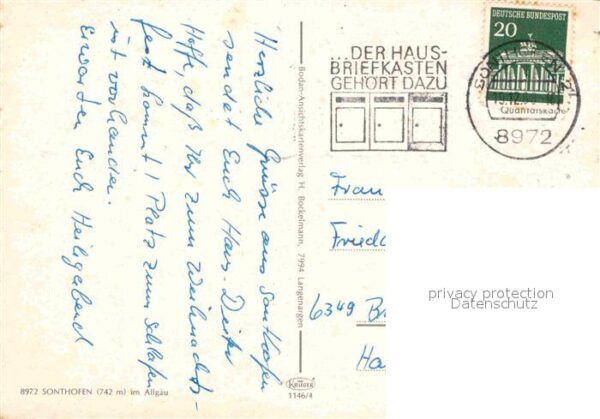 Herzliche Grüsse aus Sonthofen
sendet Euch Hans-Dieter
Hoffe, daß Ihr zum Weihnachts-
fest kommt! Platz zum Schlafen
ist vorhanden.
Erwarten Euch Heiligabend
8972 SONTHOFEN (742 m) im Allgäu
Bodan-Ansichtskartenverlag H. Bockelmann, 7994 Langenargen
Krüger
1146/4
...DER HAUS-
BRIEFKASTEN
GEHÖRT DAZU
DEUTSCHE BUNDESPOST
20
8972
Frau
Fried
6349 B
Ha
privacy protection
Datenschutz